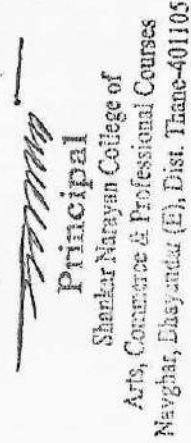 Principal
Shankar Narayan College of
Arts, Commerce & Professional Courses
Navghar, Bhayandar (E), Dist. Thane-401105